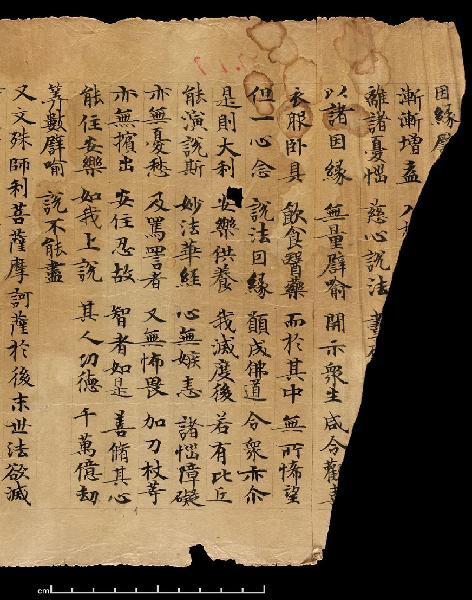 因緣譬
漸漸增益 入
離諸憂惱 慈心說法 晝
以諸因緣 無量譬喻 開示眾生 咸令歡喜
衣服卧具 飲食醫藥 而於其中 無所悕望
但一心念 說法因緣 願成佛道 令眾亦尒
是則大利 安樂供養 我滅度後 若有比丘
能演說斯 妙法華經 心無嫉恚 諸惱障礙
亦無憂愁 及罵詈者 又無怖畏 加刀杖等
亦無擯出 安住忍故 智者如是 善脩其心
能住安樂 如我上說 其人功德 千萬億劫
筭數譬喻 說不能盡
又文殊師利菩薩摩訶薩於後末世法欲滅
cm